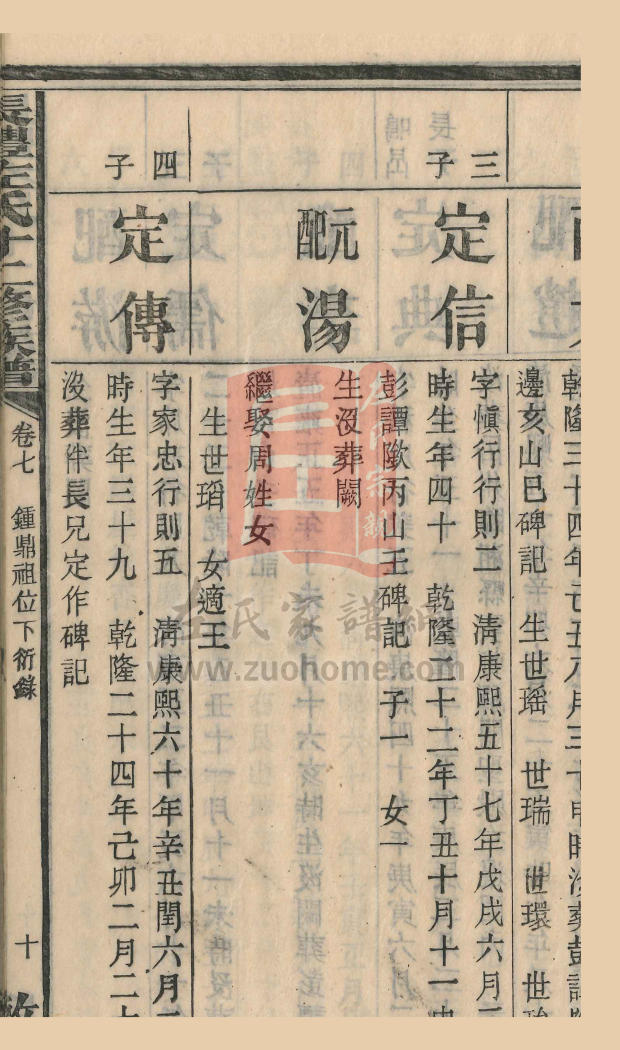 乾隆三十四年己丑八月三十申時沒葬彭譚
邊亥山巳碑記 生世瑶 世瑞 世環 世
三子
定信
字愼行行則三 淸康熙五十七年戊戌六月
時生年四十 乾隆二十二年丁丑十月十一
元配
湯
彭譚歟丙山壬碑記 子一 女一
生沒葬闕
繼娶周姓女
生世瑫 女適王
四子
定傳
字家忠行則五 淸康熙六十年辛丑閏六月
時生年三十九 乾隆二十四年己卯二月二
沒葬伴長兄定作碑記
長豐左氏十二修族譜
卷七 鍾鼎祖位下衍錄
十
左氏家譜網
www.zuohome.com